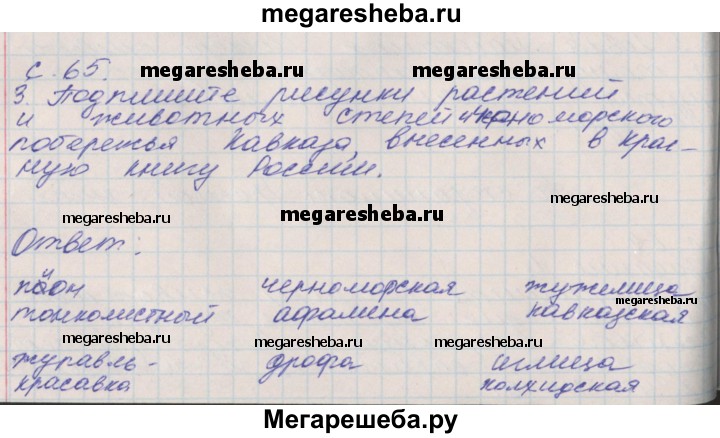 megaresheba.ru
с. 65.
megaresheba.ru megaresheba.ru
3. Подпишите рисунки растений
и животных степей черноморского
побережья Кавказа, внесенных в Крас-
ную книгу России.
megaresheba.ru megaresheba.ru megaresheba.ru
Ответ:
пион черноморская жужелица
megaresheba.ru
тонколистный афалина кавказская
megaresheba.ru megaresheba.ru megaresheba.ru
журавль- дрофа иглица
красавка колхидская
Мегарешеба.ру